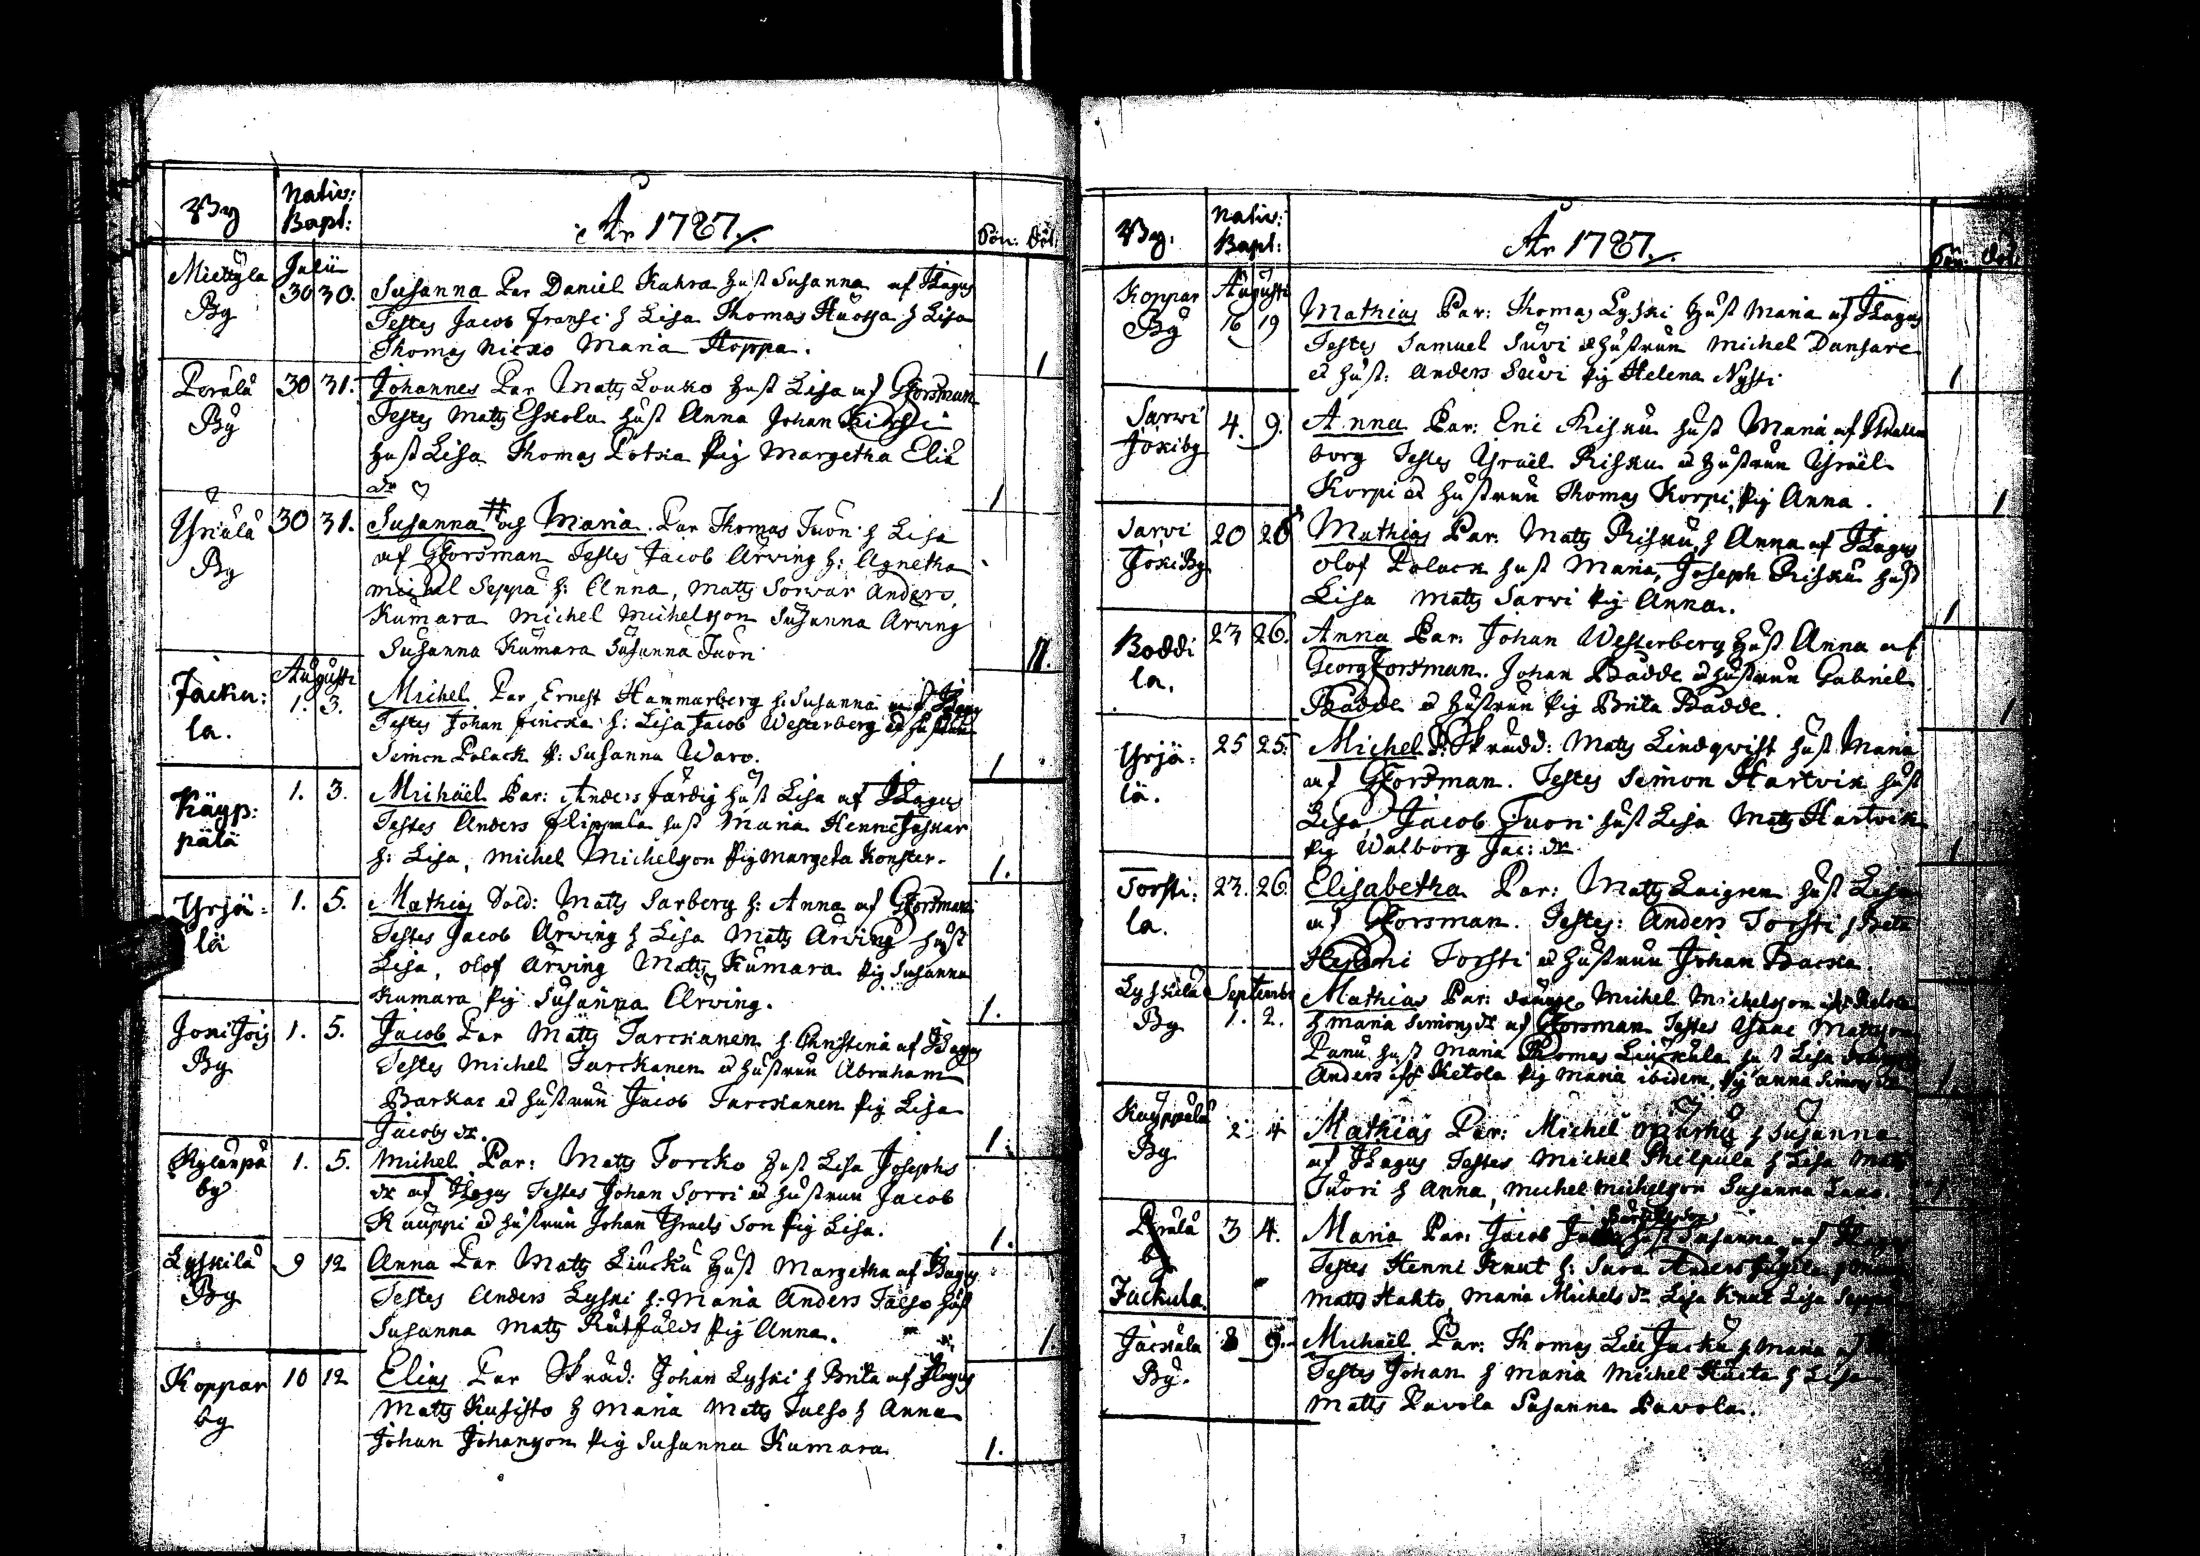 By
Nativ:
Bapt:
År 1787.
Sön: Dot:
Mickyla
By
Julii
30 30.
Susanna Par Daniel Kahra Hust Susanna af JLagus
Testes Jacob Fransi h Lisa Thomas h Lisa
Thomas Nicko Maria Hoppa.
1
Porälä
By
30 31.
Johannes Par Matts Louko Hust Lisa af GForsman
Testes Matts Eskola Hust Anna Johan
Hust Lisa Thomas Potka pig Margetha Eliæ
dr
1
Yriälä
By
30 31.
Susanna och Maria. Par Thomas Tuori h Lisa
af GForsman Testes Jacob Arving h: Agnetha
Michel Seppä h: Anna, Matts Sorvar Anders
Kumara Michel Michelsson Susanna Arving
Susanna Kumara Susanna Tuori
II.
Jäcku:
la.
Augusti
1. 3.
Michel Par Ernest Hammarberg h: Susanna af JLagus
Testes Johan Fincka h: Lisa Jacob Westerberg ed hustrun
Simon Polack p: Susanna Waro.
1
Käyp:
pälä
1. 3.
Michäel Par: Anders Färdig Hust Lisa af JLagus
Testes Anders Flippula hust Maria Henric Jaskar
h: Lisa, Michel Michelsson pig Margeta Konster.
1.
Yrjä:
lä
1. 5.
Mathias Sold: Matts Sarberg h: Anna af GForsman
Testes Jacob Arving h Lisa Matts Arving hust
Lisa, Olof Arving Matts Kumara pig Susanna
Kumara pig Susanna Arving.
1.
Joki Jois
By
1. 5.
Jacob Par Matts Tarckanen h Christina af JLagus
Testes Michel Tarckanen ed hustrun Abraham
Barkar ed hustrun Jacob Tarckanen pig Lisa
Jacobs dr.
1.
Kylänpä
by
1. 5.
Michel Par: Matts Torcko Hust Lisa Josephs
dr af JLagus Testes Johan Sorri ed hustrun Jacob
Kauppi ed hustrun Johan Israels Son pig Lisa.
1.
Lyskilä
By
9 12
Anna Par Matts Liucku Hust Margetha af JLagus
Testes Anders Lyski h: Maria Anders Talso Hust
Susanna Matts Rutfälds pig Anna.
1.
Koppar
by
10 12
Elias Par Skräd: Johan Lyski h Brita af JLagus
Matts Kusisto h Maria Matts Talso h Anna
Johan Johansson pig Susanna Kumara
1.
By.
Nativ:
Bapt:
År 1787.
Koppar
By
Augusti
16 19
Mathias Par: Thomas Lyski Hust Maria af JLagus
Testes Samuel Suvi ed hustrun Michel Dansare
ed hust: Anders Suvi pig Helena Nysti
1
Sarwi
Jokiby
4. 9.
Anna Par: Eric Risku hust Maria af Wallen
borg Testes Israël Risku ed hustrun Israël
Korpi ed hustrun Thomas Korpi, pig Anna.
1
Sarvi
Joki By
20 26
Mathias Par: Matts Risku h Anna af JLagus
Olof Polack hust Maria, Joseph Risku hust
Lisa Matts Sarvi pig Anna.
1
Boddi
la.
23 26.
Anna Par: Johan Westerberg Hust Anna af
Georg Forsman. Johan Bådde ed hustrun Gabriel
Bådde ed hustrun pig Brita Bådde.
1
Yrjä:
lä.
25 25.
Michel P: Skrädd: Matts Lindqwist Hust Maria
af GForsman. Testes Simon Hartvik hust
Lisa, Jacob Tuori hust Lisa Matts Hartvik
pig Walborg Jac: dr.
1
Torsti:
la.
23. 26.
Elisabetha Par: Matts Laigren hust Lisa
af GForsman. Testes: Anders Torsti h Beta
Torsti ed hustrun Johan Backa
Lyskilä
By
Septembr
1. 2.
Mathias Par: Michel Michelsson
h Maria Simons dr af GForsman Testes Mattsson
Panu hust Maria Thomas Liuckula hust Lisa
Anders Ketola pig Maria ibidem, pig Anna Simons dr
1.
Käyppälä
By
2. 4
Mathias Par: Michel Markus h Susanna
af JLagus Testes Michel Philpula h Lisa Matts
Tuori h Anna, Michel Michelsson Susanna
Jäckula
3 4.
Maria Par: Jacob hust Susanna af JLagus
Testes Henric Knut h: Sara Anders
Matts Hahto, Maria Michels dr Lisa Knut Lisa Seppä
Jäckula
By.
8 9.
Michäel. Par: Thomas Lill Jäcku h Maria af
Testes Johan h Maria Michel h Lisa
Matts Pavola Susanna Pawola.